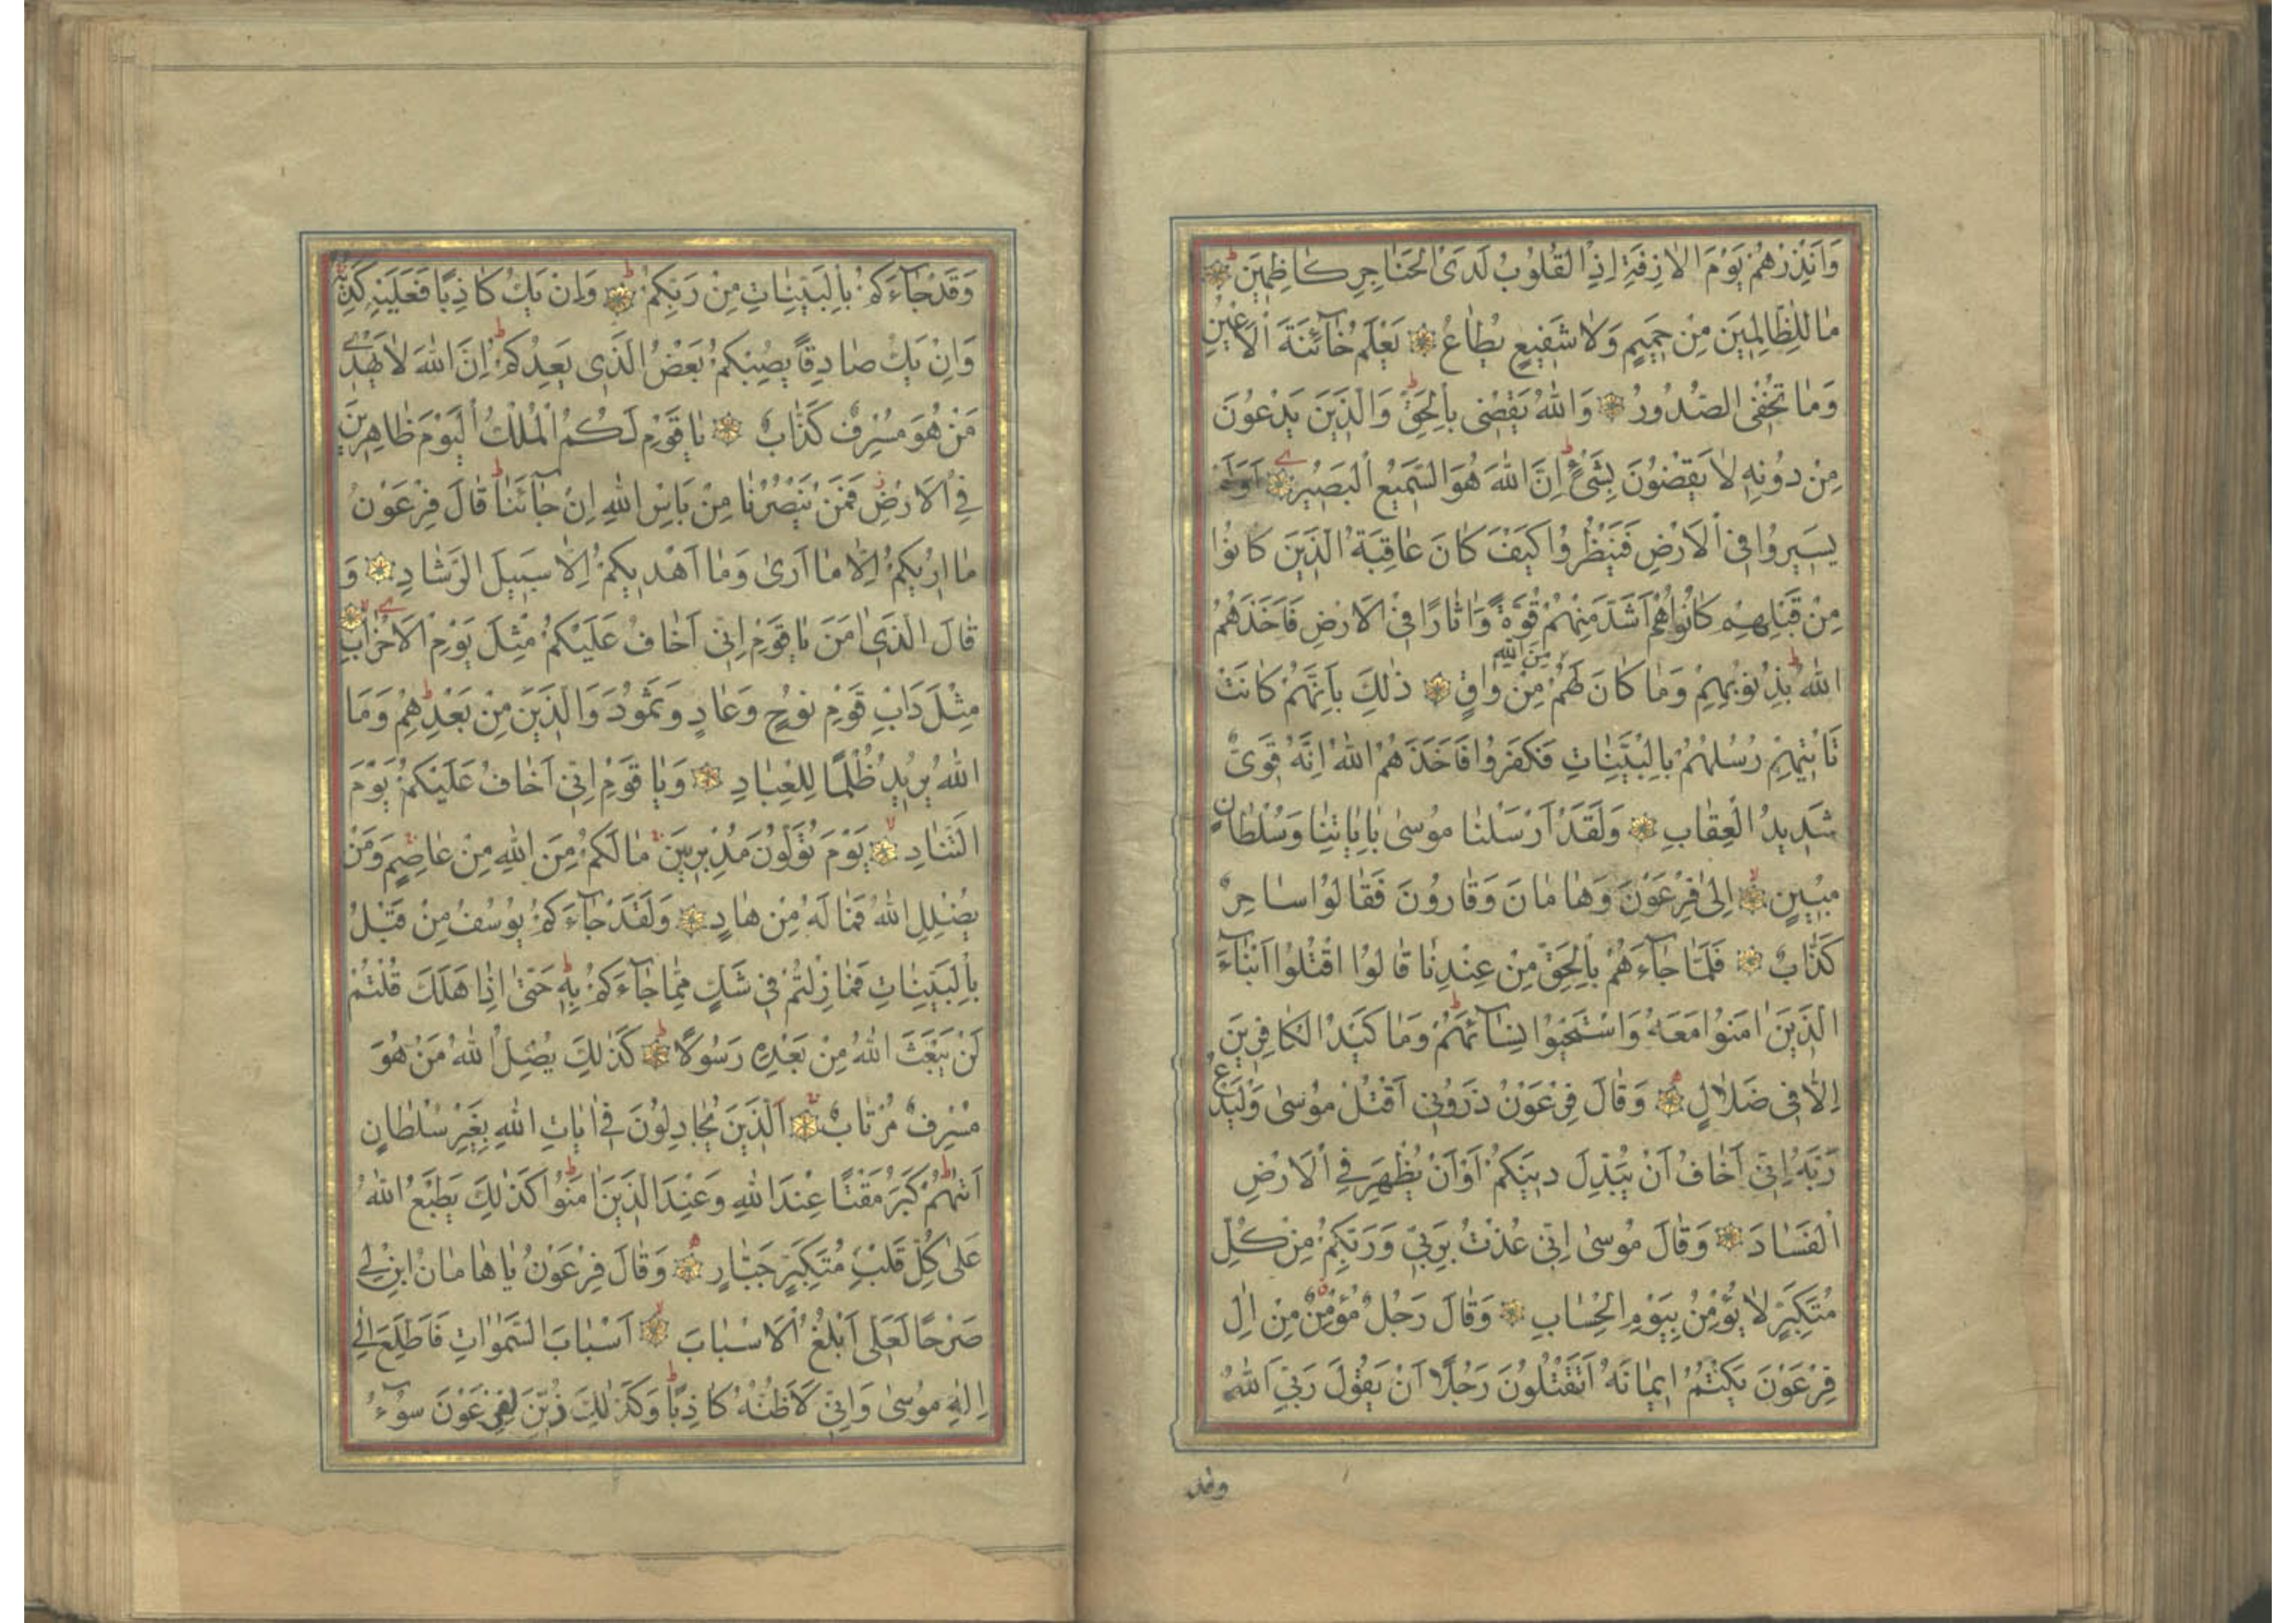 وَاَنْذِرْهُمْ يَوْمَ الْاٰزِفَةِ اِذِ الْقُلُوبُ لَدَى الْحَنَاجِرِ كَاظِمِينَ
مَا لِلظَّالِمِينَ مِنْ حَمِيمٍ وَلَا شَفِيعٍ يُطَاعُ يَعْلَمُ خَآئِنَةَ الْاَعْيُنِ
وَمَا تُخْفِى الصُّدُورُ وَاللّٰهُ يَقْضِى بِالْحَقِّ وَالَّذِينَ يَدْعُونَ
مِنْ دُونِهِ لَا يَقْضُونَ بِشَىْءٍ اِنَّ اللّٰهَ هُوَ السَّمِيعُ الْبَصِيرُ اَوَلَمْ
يَسِيرُوا فِى الْاَرْضِ فَيَنْظُرُوا كَيْفَ كَانَ عَاقِبَةُ الَّذِينَ كَانُوا
مِنْ قَبْلِهِمْ كَانُوا هُمْ اَشَدَّ مِنْهُمْ قُوَّةً وَاٰثَارًا فِى الْاَرْضِ فَاَخَذَهُمُ
اللّٰهُ بِذُنُوبِهِمْ وَمَا كَانَ لَهُمْ مِنَ اللّٰهِ مِنْ وَاقٍ ذٰلِكَ بِاَنَّهُمْ كَانَتْ
تَاْتِيهِمْ رُسُلُهُمْ بِالْبَيِّنَاتِ فَكَفَرُوا فَاَخَذَهُمُ اللّٰهُ اِنَّهُ قَوِىٌّ
شَدِيدُ الْعِقَابِ وَلَقَدْ اَرْسَلْنَا مُوسٰى بِاٰيَاتِنَا وَسُلْطَانٍ
مُبِينٍ اِلٰى فِرْعَوْنَ وَهَامَانَ وَقَارُونَ فَقَالُوا سَاحِرٌ
كَذَّابٌ فَلَمَّا جَآءَهُمْ بِالْحَقِّ مِنْ عِنْدِنَا قَالُوا اقْتُلُوا اَبْنَآءَ
الَّذِينَ اٰمَنُوا مَعَهُ وَاسْتَحْيُوا نِسَآئَهُمْ وَمَا كَيْدُ الْكَافِرِينَ
اِلَّا فِى ضَلَالٍ وَقَالَ فِرْعَوْنُ ذَرُونِى اَقْتُلْ مُوسٰى وَلْيَدْعُ
رَبَّهُ اِنِّى اَخَافُ اَنْ يُبَدِّلَ دِينَكُمْ اَوْ اَنْ يُظْهِرَ فِى الْاَرْضِ
الْفَسَادَ وَقَالَ مُوسٰى اِنِّى عُذْتُ بِرَبِّى وَرَبِّكُمْ مِنْ كُلِّ
مُتَكَبِّرٍ لَا يُؤْمِنُ بِيَوْمِ الْحِسَابِ وَقَالَ رَجُلٌ مُؤْمِنٌ مِنْ اٰلِ
فِرْعَوْنَ يَكْتُمُ اِيمَانَهُ اَتَقْتُلُونَ رَجُلًا اَنْ يَقُولَ رَبِّىَ اللّٰهُ
وقد
وَقَدْ جَآءَكُمْ بِالْبَيِّنَاتِ مِنْ رَبِّكُمْ وَاِنْ يَكُ كَاذِبًا فَعَلَيْهِ كَذِبُهُ
وَاِنْ يَكُ صَادِقًا يُصِبْكُمْ بَعْضُ الَّذِى يَعِدُكُمْ اِنَّ اللّٰهَ لَا يَهْدِى
مَنْ هُوَ مُسْرِفٌ كَذَّابٌ يَا قَوْمِ لَكُمُ الْمُلْكُ الْيَوْمَ ظَاهِرِينَ
فِى الْاَرْضِ فَمَنْ يَنْصُرُنَا مِنْ بَاْسِ اللّٰهِ اِنْ جَآئَنَا قَالَ فِرْعَوْنُ
مَا اُرِيكُمْ اِلَّا مَا اَرٰى وَمَا اَهْدِيكُمْ اِلَّا سَبِيلَ الرَّشَادِ وَ
قَالَ الَّذِى اٰمَنَ يَا قَوْمِ اِنِّى اَخَافُ عَلَيْكُمْ مِثْلَ يَوْمِ الْاَحْزَابِ
مِثْلَ دَاْبِ قَوْمِ نُوحٍ وَعَادٍ وَثَمُودَ وَالَّذِينَ مِنْ بَعْدِهِمْ وَمَا
اللّٰهُ يُرِيدُ ظُلْمًا لِلْعِبَادِ وَيَا قَوْمِ اِنِّى اَخَافُ عَلَيْكُمْ يَوْمَ
التَّنَادِ يَوْمَ تُوَلُّونَ مُدْبِرِينَ مَا لَكُمْ مِنَ اللّٰهِ مِنْ عَاصِمٍ وَمَنْ
يُضْلِلِ اللّٰهُ فَمَا لَهُ مِنْ هَادٍ وَلَقَدْ جَآءَكُمْ يُوسُفُ مِنْ قَبْلُ
بِالْبَيِّنَاتِ فَمَا زِلْتُمْ فِى شَكٍّ مِمَّا جَآءَكُمْ بِهِ حَتّٰى اِذَا هَلَكَ قُلْتُمْ
لَنْ يَبْعَثَ اللّٰهُ مِنْ بَعْدِهِ رَسُولًا كَذٰلِكَ يُضِلُّ اللّٰهُ مَنْ هُوَ
مُسْرِفٌ مُرْتَابٌ اَلَّذِينَ يُجَادِلُونَ فِى اٰيَاتِ اللّٰهِ بِغَيْرِ سُلْطَانٍ
اَتٰيهُمْ كَبُرَ مَقْتًا عِنْدَ اللّٰهِ وَعِنْدَ الَّذِينَ اٰمَنُوا كَذٰلِكَ يَطْبَعُ اللّٰهُ
عَلٰى كُلِّ قَلْبِ مُتَكَبِّرٍ جَبَّارٍ وَقَالَ فِرْعَوْنُ يَا هَامَانُ ابْنِ لِى
صَرْحًا لَعَلِّى اَبْلُغُ الْاَسْبَابَ اَسْبَابَ السَّمٰوَاتِ فَاَطَّلِعَ اِلٰى
اِلٰهِ مُوسٰى وَاِنِّى لَاَظُنُّهُ كَاذِبًا وَكَذٰلِكَ زُيِّنَ لِفِرْعَوْنَ سُوٓءُ